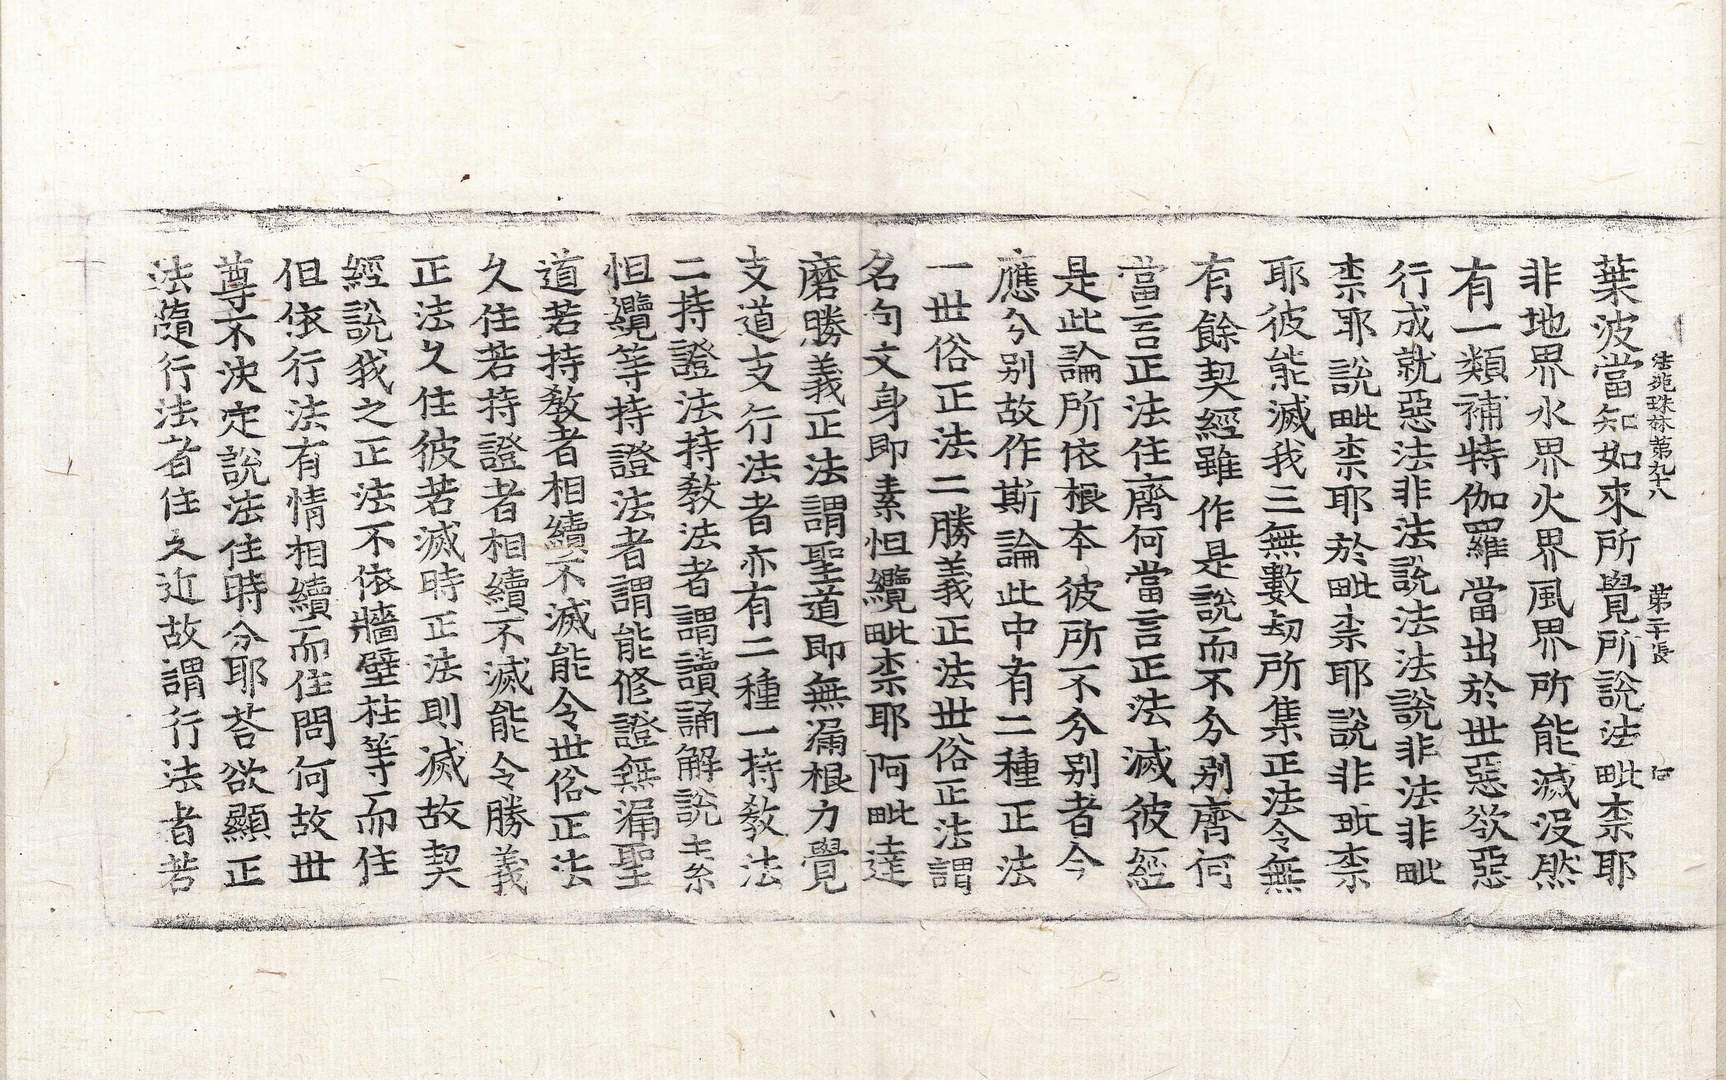 法苑珠林第九十八　第二十張
葉波當知如來所覺所說法毗柰耶
非地界水界火界風界所能滅沒然
有一類補特伽羅當出於世惡欲惡
行成就惡法非法說法法說非法非毗
柰耶說毗柰耶於毗柰耶說非毗柰
耶彼能滅我三無數劫所集正法令無
有餘契經雖作是說而不分別齊何
當言正法住齊何當言正法滅彼經
是此論所依根本彼所不分別者今
應分別故作斯論此中有二種正法
一世俗正法二勝義正法世俗正法謂
名句文身即素怛纜毗柰耶阿毗達
磨勝義正法謂聖道即無漏根力覺
支道支行法者亦有二種一持教法
二持證法持教法者謂讀誦解說素
怛纜等持證法者謂能修證無漏聖
道若持教者相續不滅能令世俗正法
久住若持證者相續不滅能令勝義
正法久住彼若滅時正法則滅故契
經說我之正法不依牆壁柱等而住
但依行法有情相續而住問何故世
尊不決定說法住時分耶荅欲顯正
法隨行法者住久近故謂行法者若